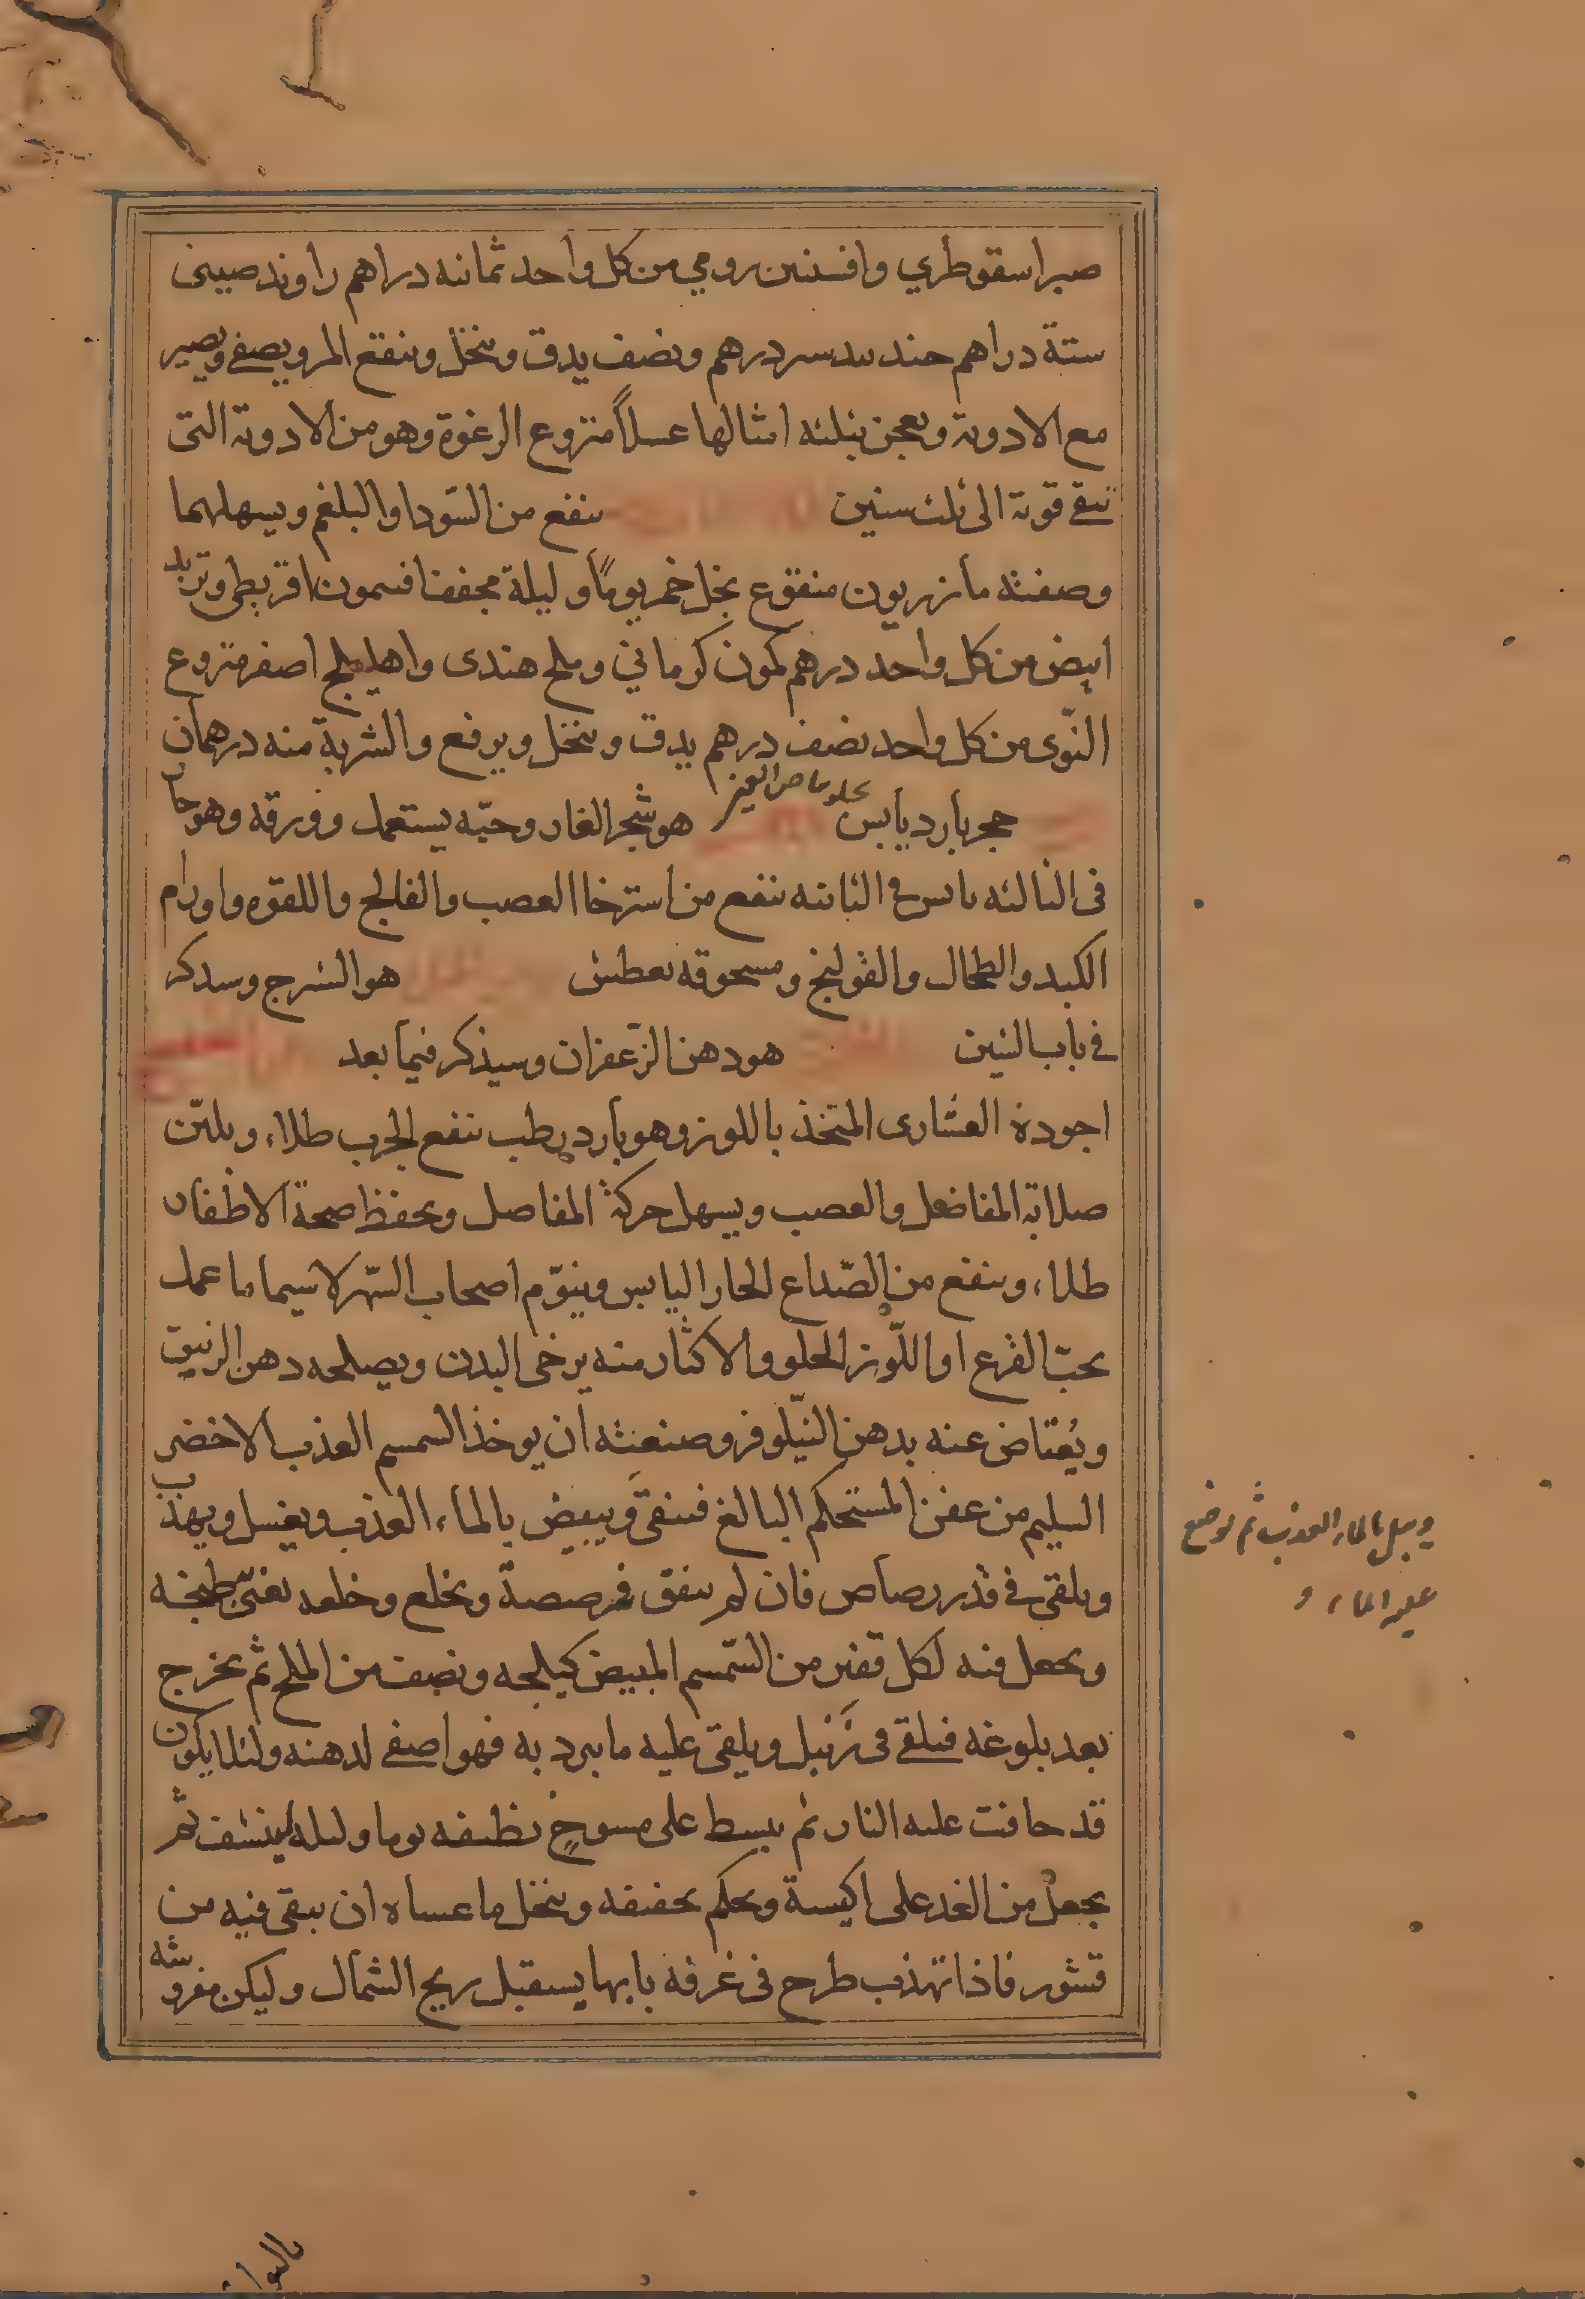 صبر اسقوطري وافسنتين رومي من كل واحد ثمانيه دراهم راوند صيني
ستة دراهم جندبيدستر درهم ونصف يدق وينخل وينقع المر ويصفى ويصير
مع الادوية ويعجن بثلثه امثالها عسلاً منزوع الرغوة وهو من الادوية التى
تبقى قوته الى ثلث سنين ينفع من السّودا والبلغم ويسهلهما
وصفته مازريون منقوع بخل خمر يوماً وليلة مجففا افتيمون اقريطى وتربد
ابيض من كل واحد درهم كمون كرماني وملح هندى واهليلج اصفر منزوع
النّوى من كل واحد نصف درهم يدق وينخل ويرفع والشربة منه درهمان
حجر بارد يابس يجلو هو شجر الغار وحبّه يستعمل وورقه وهو حار
فى الثالثه يابس فى الثانيه ينفع من استرخا العصب والفالج واللقوه واورام
الكبد والطحال والقولنج ومسحوقه يعطش هو الشيرج وسيذكر
في باب الشين هو دهن الزّعفران وسيذكر فيما بعد
اجوده العشارى المتخذ باللوز وهو بارد رطب ينفع الجرب طلاء ويليّن
صلابة المفاصل والعصب ويسهل حركة المفاصل ويحفظ صحة الاظفار
طلاء وينفع من الصّداع الحار اليابس وينوّم اصحاب السّهر لا سيما ما عمل
بحبّ القرع او اللّوز الحلو والاكثار منه يرخى البدن ويصلحه دهن الزنبق
ويُعتاض عنه بدهن النّيلوفر وصنعته ان يوخذ السمسم العذب الاخضر
السليم من عفن المستحكم البالغ فينقى ويبيض بالماء العذب ويغسل ويهذب
ويلقى في قدر رصاص فان لم يتفق فمرصصة ويخلع وخلعه يعنى طبخه
ويجعل فيه لكل قفيز من السّمسم المبيض كيلجه ونصف من الملح ثم يخرج
بعد بلوغه فيلقى فى زنبيل ويلقى عليه ما يبرد به فهو اصفى لدهنه ولئلا يكون
قد حافت عليه النار ثم يبسط على مسوحٍ نظيفه يوما وليله لينشف ثم
يجعل من الغد على اكيسة ويحكم تجفيفه وينخل ما عساه ان يبقى فيه من
قشور فاذا تهذب طرح فى غرفه بابها يستقبل ريح الشمال وليكن مفروشه
ويبل بالماء العذب ثم يوضع
عليه الماء و